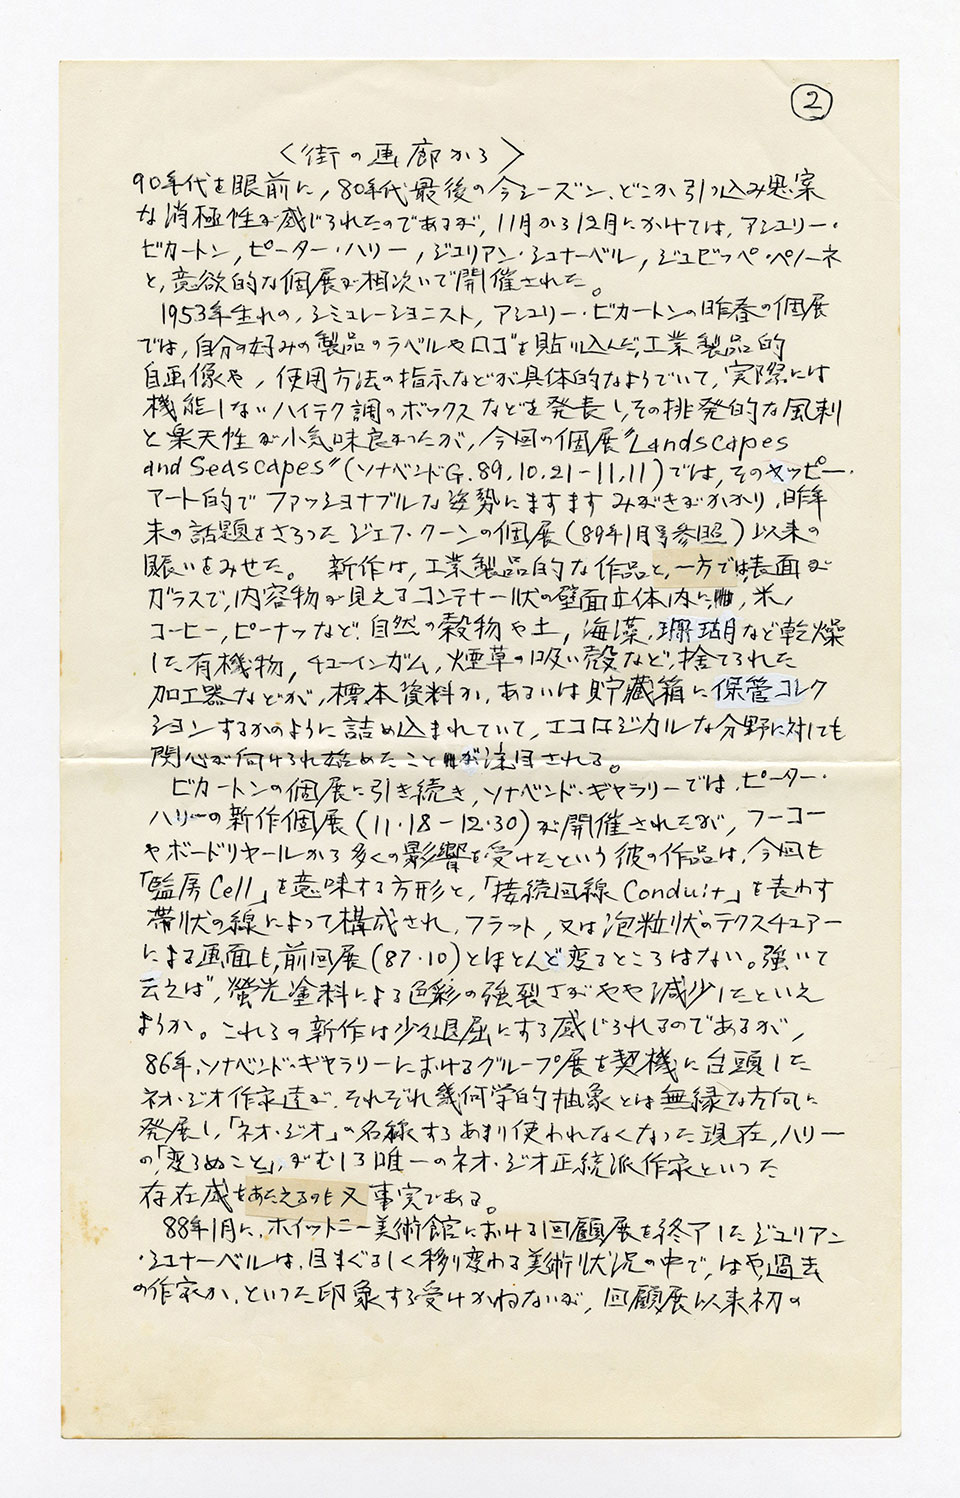 ②
〈街の画廊から〉
90年代を眼前に，80年代最後の今シーズン、どこか引っ込み思案
な消極性が感じられたのであるが，11月から12月にかけては，アシュリー・
ビカートン，ピーター・ハリー，ジュリアン・シュナーベル，ジュゼッペ・ペノーネ
と，意欲的な個展が相次いで開催された。
1953年生れの，シミュレーショニスト，アシュリー・ビカートンの昨春の個展
では，自分の好みの製品のラベルやロゴを貼り込んだ，工業製品的
自画像や，使用方法の指示などが具体的なようでいて，実際には
機能しないハイテク調のボックスなどを発表し，その挑発的な風刺
と楽天性が小気味良かったが，今回の個展“Landscapes
and Seascapes”（ソナベンドG. 89.10.21－11.11）では，そのヤッピー・
アート的でファッショナブルな姿勢にますますみがきがかかり，昨年
末の話題をさらったジェフ・クーンの個展（89年1月号参照）以来の
賑いをみせた。 新作は，工業製品的な作品と，一方では，表面が
ガラスで，内容物が見えるコンテナー状の壁面立体内に，米，
コーヒー，ピーナッなど，自然の穀物や土，海藻，珊瑚など乾燥
した有機物，チューインガム，煙草の吸い殻など，捨てられた
加工器などが，標本資料か，あるいは貯蔵箱に保管コレク
ションするかのように詰め込まれていて，エコロジカルな分野に対しても
関心が向けられ始めたことが注目される。
ビカートンの個展に引き続き，ソナベンド・ギャラリーでは，ピーター・
ハリーの新作個展（11・18－12・30）が開催されたが，フーコー
やボードリヤールから多くの影響を受けたという彼の作品は，今回も
「監房Cell」を意味する方形と，「接続回線Conduit」を表わす
帯状の線によって構成され，フラット，又は泡粒状のテクスチュアー
による画面も，前回展（87・10）とほとんど変るところはない。強いて
云えば，螢光塗料による色彩の強烈さがやや減少したといえ
ようか。これらの新作は少々退屈にすら感じられるのであるが，
86年，ソナベンド・ギャラリーにおけるグループ展を契機に台頭した
ネオ・ジオ作家達が，それぞれ幾何学的抽象とは無縁な方向に
発展し，「ネオ・ジオ」の名称すらあまり使われなくなった現在，ハリー
の「変らぬこと」が，むしろ唯一のネオ・ジオ正統派作家といった
存在感をあたえるのも又事実である。
88年1月に，ホイットニー美術館における回顧展を終了したジュリアン
・シュナーベルは，目まぐるしく移り変わる美術状況の中で，はや，過去
の作家か，といった印象すら受けかねないが，回顧展以来初の